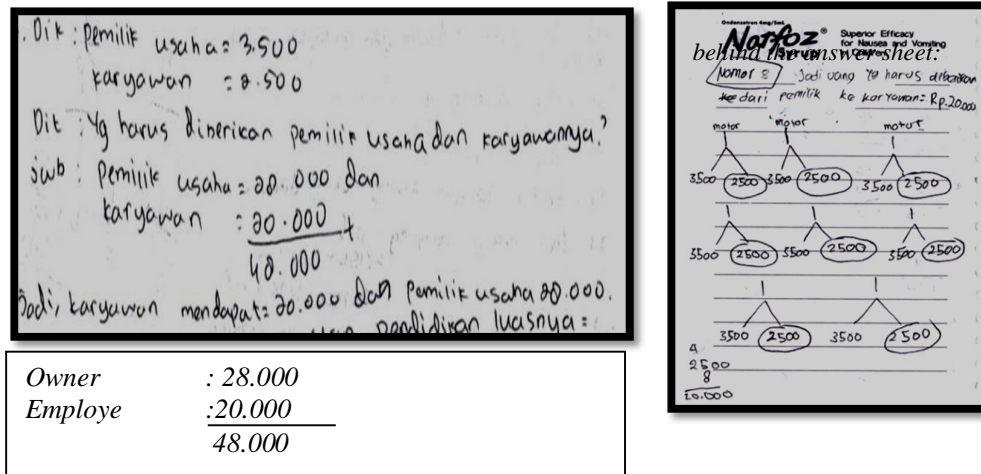 . Dik : Pemilik usaha = 3.500
karyawan = 2.500
Dit : Yg harus diberikan pemilik usaha dan karyawannya?
Jwb : Pemilik usaha = 28.000 dan
karyawan = 20.000 +
48.000
Jadi, karyawan mendapat = 20.000 dan pemilik usaha 28.000.
pendidikan luasnya =
Owner : 28.000
Employe :20.000
48.000
Ondansetron 4mg/5mL
Narfoz® Superior Efficacy
for Nausea and Vomiting
Syrup
behind the answer sheet:
Nomor 8 Jadi uang yg harus diberikan
ke dari pemilik ke karyawan = Rp.20.000
motor motor motor
3500 2500 3500 2500 3500 2500
3500 2500 3500 2500 3500 2500
3500 2500 3500 2500
4
2500
8
20.000